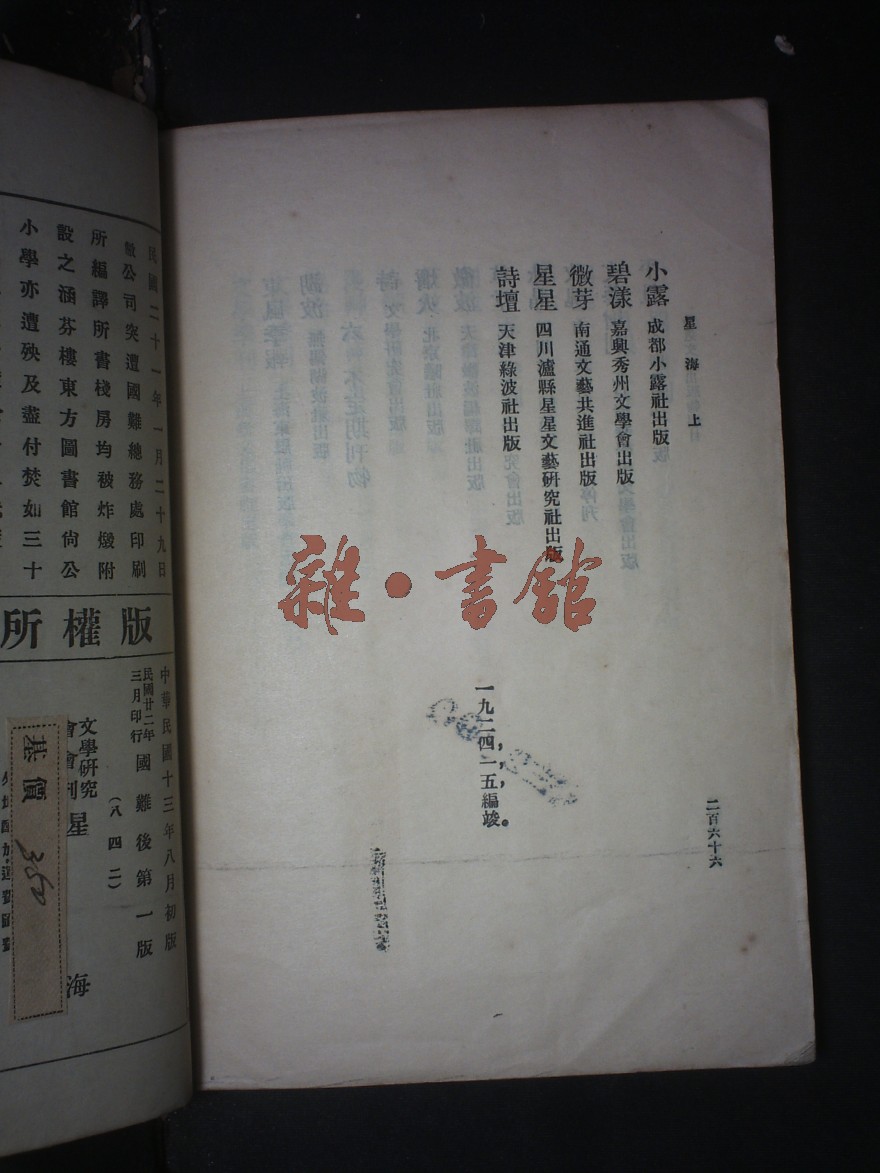 星海 上
小露 成都小露社出版
碧漾 嘉興秀州文學會出版
微芽 南通文藝共進社出版
星星 四川瀘縣星星文藝研究社出版
詩壇 天津綠波社出版
一九二四,一,五,編竣。
二百六十六
雜·書館
民國二十一年一月二十九日
敝公司突遭國難總務處印刷
所編譯所書棧房均被炸燬附
設之涵芬樓東方圖書館尚公
小學亦遭殃及盡付焚如三十
版權所
中華民國十三年八月初版
民國廿二年三月印行 國難後第一版
(八四二)
文學研究會會刊 星海
基價 360